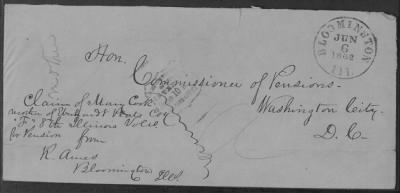 mother
BLOOMINGTON
JUN
6
1862
ILL
Hon.
Commissioner of Pensions.
Washington City.
D. C.
Claim of Mary Cook
mother of W
"F" 8th Illinois Vols
for Pension
from
R. Ames
Bloomington Ills.